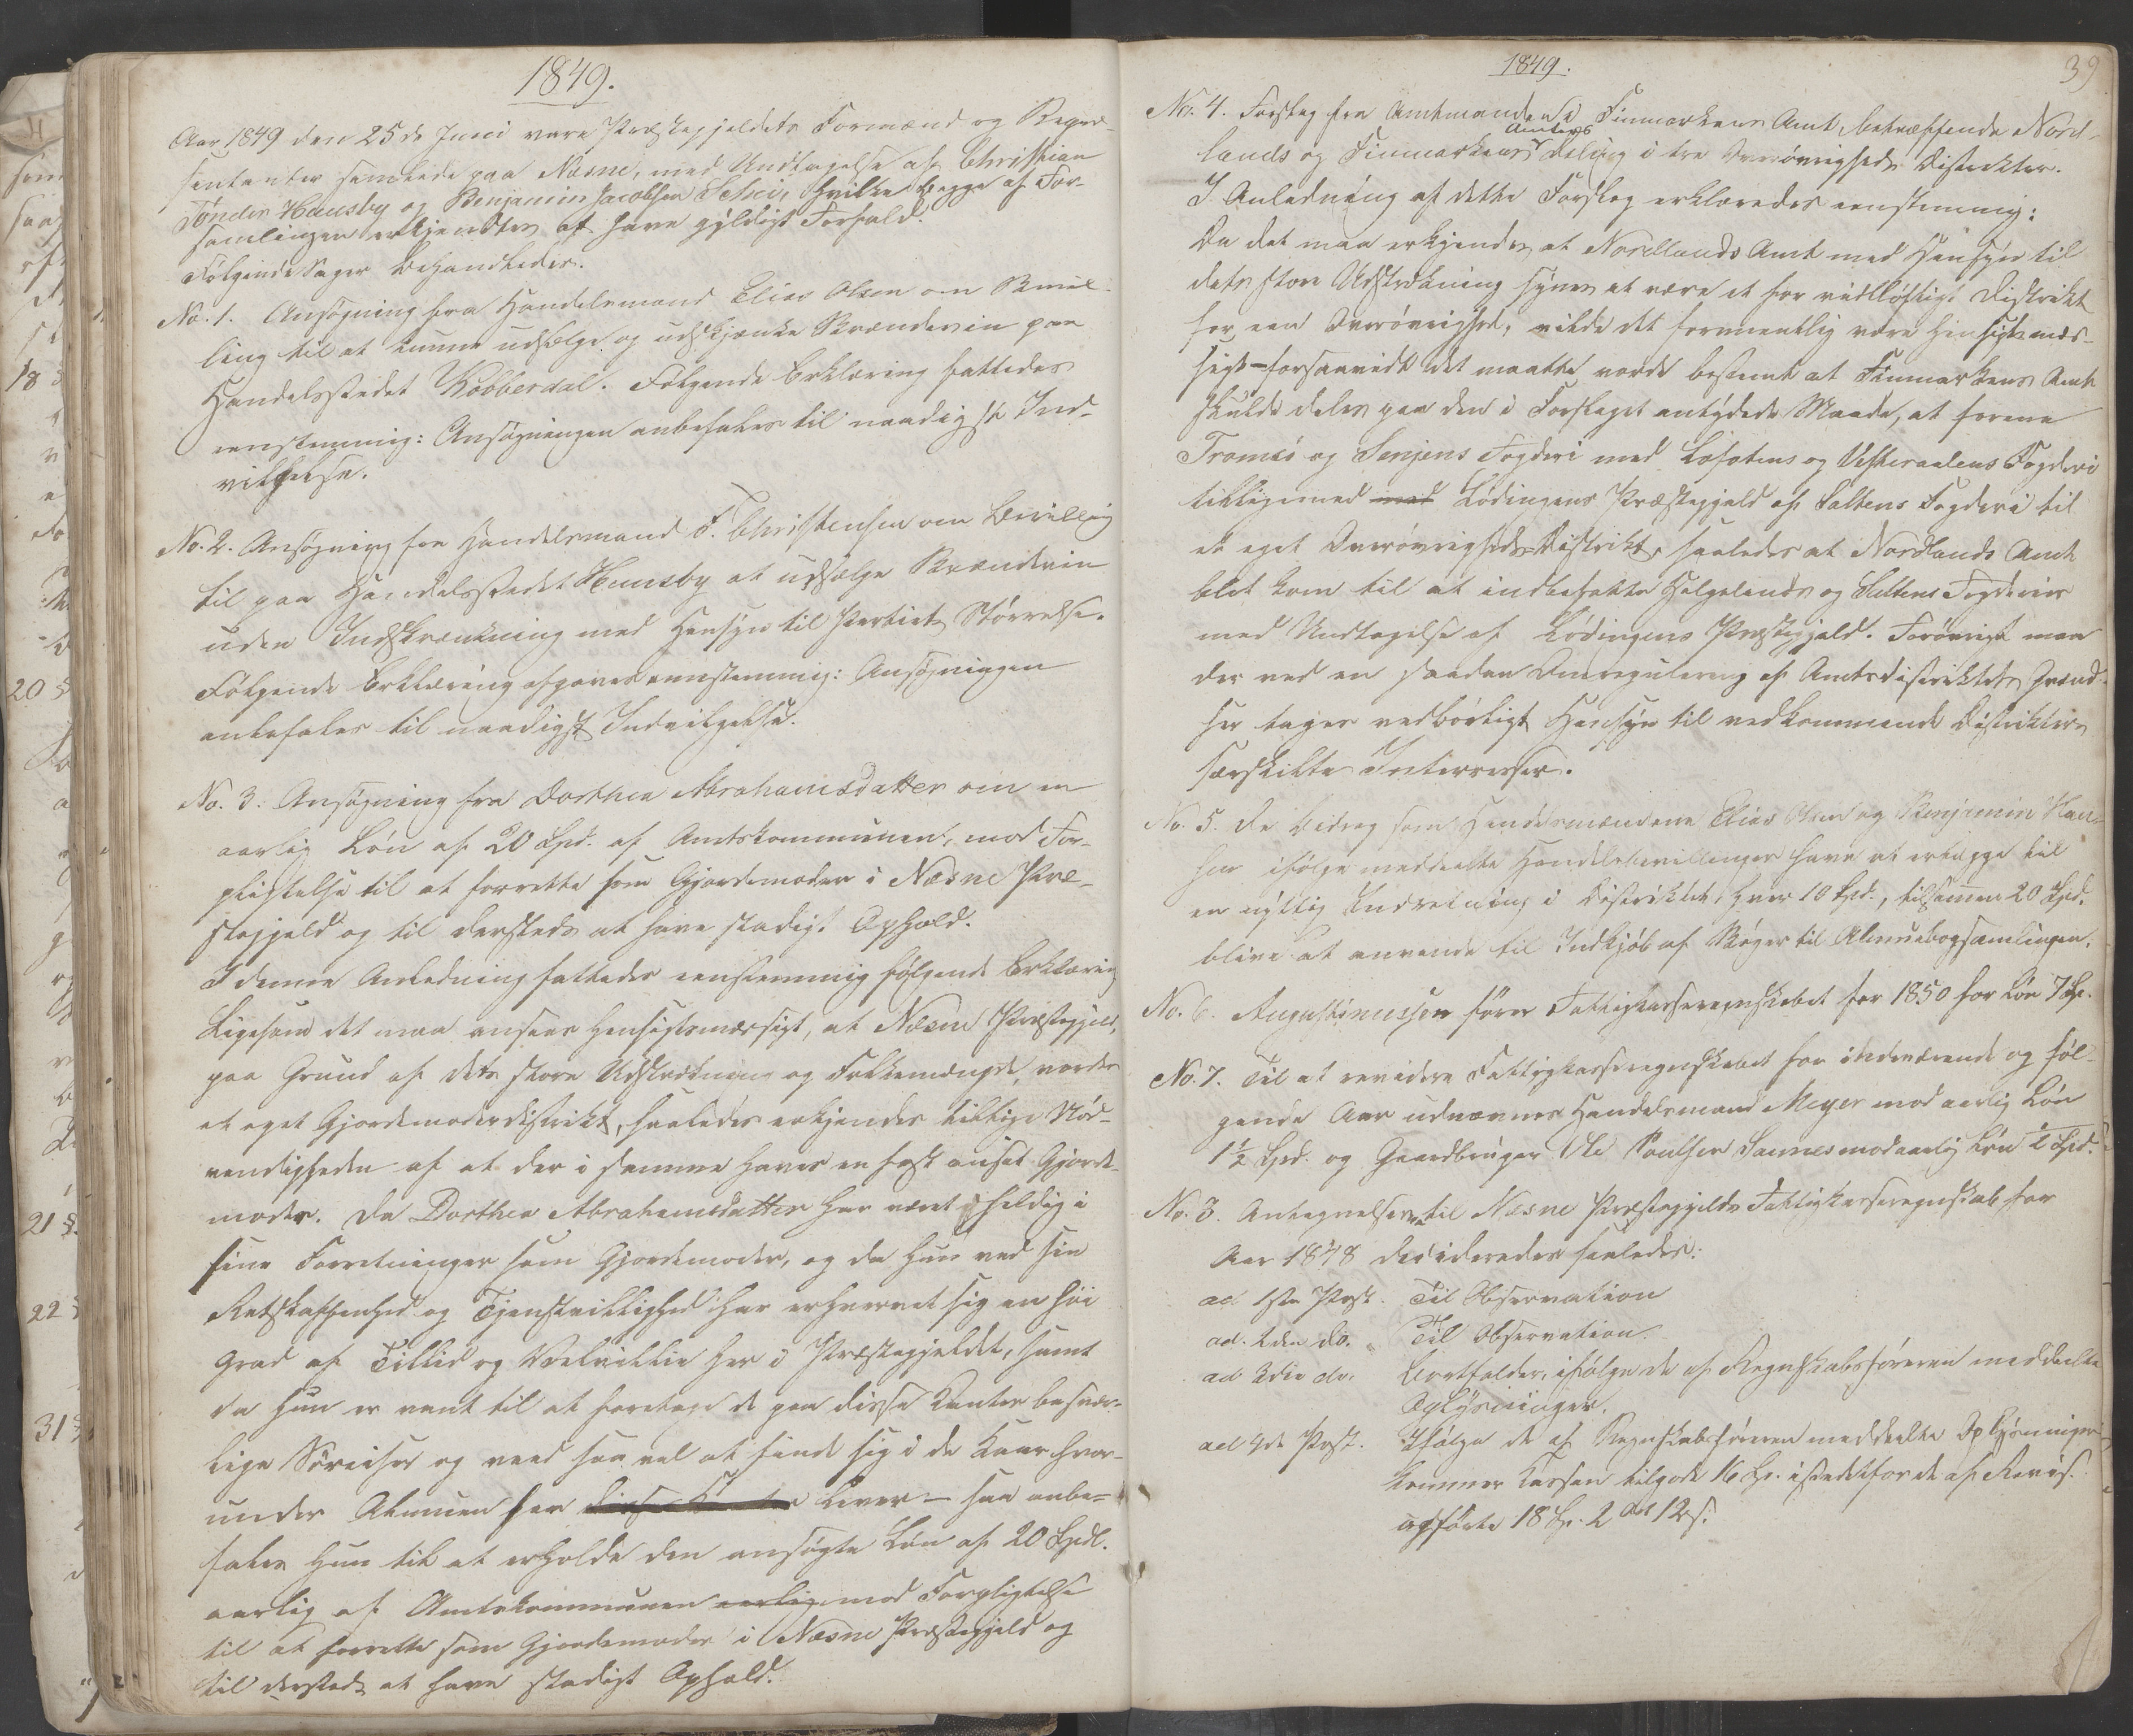 1849.
Aar 1849 den 25de Juni vare Præstegjeldets Formænd og Repræ-
sentanter samlede paa Næsne, med Undtagelse af Christian
Tønder Hausby og Benjamin Jacobsen, hvilke begge af For-
samlingen erkjendtes at have gyldigt Forfald.
Følgende Sager behandledes.
No. 1. Ansøgning fra Handelsmand Elias Olsen om Bevil-
ling til at kunne udsælge og udskjænke Brændeviin paa
Handelsstedet Kobberdal. Følgende Erklæring fattedes
eenstemmig: Ansøgningen anbefales til naadigste Ind-
vilgelse.
No. 2. Ansøgning fra Handelsmand F. Christensen om Bevilling
til paa Handelsstedet Hausby at udsælge Brændeviin
uden Indskrænkning med Hensyn til Partiets Størrelse.
Følgende Erklæring afgaves eenstemmig: Ansøgningen
anbefales til naadigst Indvilgelse.
No. 3. Ansøgning fra Dorthea Abrahamsdatter om en
aarlig Løn af 20 Spd. af Amtskommunen, mod For-
pligtelse til at forrette som Gjordemoder i Næsne Præ-
stegjeld og til dersteds at have stadigt Ophold.
I denne Anledning fattedes eenstemmig følgende Erklæring
Ligesom det maa ansees hensigtsmæssigt, at Næsne Præstegjeld,
paa Grund af dets store Udstrækning og Folkemængde, vorder
et eget Gjordemoderdistrikt, saaledes erkjendes tillige Nød-
vendigheden af at der i samme haves en fast ansat Gjorde-
moder. Da Dorthea Abrahamsdatter har været heldig i
sine Forretninger som Gjordemoder, og da hun ved sin
Retskaffenhed og Tjenstvillighed har erhvervet sig en høi
Grad af Tillid og Velvillie her i Præstegjeldet, samt
da hun er vant til at foretage de paa disse Kanter besvær-
lige Søreiser og veed saa vel at finde sig i de Kaar hvor-
under Almuen her lever – saa anbe-
fales hun til at erholde den ansøgte Løn af 20 Spdl.
aarlig af Amtskommunen aarlig mod Forpligtelse
til at forrette som Gjordemoder i Næsne Præstegjeld og
til dersteds at have stadigt Ophold.
1849.
39
No. 4. Forslag fra Amtmanden i Finmarkens Amt, betræffende Nord-
lands og Finmarkens Amters Deling i tre Overøvrigheds Distrikter.
I Anledning af dette Forslag erklæredes eenstemmig:
Da det maa erkjendes at Nordlands Amt med Hensyn til
dets store Udstrækning synes at være et for vidtløftigt Distrikt
for een Overøvrighed, vilde det formeentlig være hensigtsmæs-
sigt – forsaavidt det maatte vorde bestemt at Finmarkens Amt
skulde deles paa den i Forslaget antydede Maade, at forene
Tromsø og Senjens Fogderi med Lofotens og Vesteraalens Fogderi
tilligemed med Lødingens Præstegjeld af Saltens Fogderi til
et eget Overøvrigheds Distrikt, saaledes at Nordlands Amt
blot kom til at indbefatte Helgelands og Saltens Fogderier
med Undtagelse af Lødingens Præstegjeld. Forøvrigt maa
der ved en saadan Omregulering af Amtsdistriktets Grænd-
ser tages vedbørligt Hensyn til vedkommende Distrikters
særskilte Interesser.
No. 5. De Bidrag som Handelsmændene Elias Olsen og Benjamin Han-
sen ifølge meddeelte Handelsbevillinger have at erlægge til
en nyttig Indretning i Distriktet, hver 10 Spd., tilsammen 20 Spd.
blive at anvende til Indkjøb af Bøger til Almuebogsamlingen.
No. 6. Augustinussen fører Fattigkasseregnskabet for 1850 for Løn 7 Sp.
No. 7. Til at revidere Fattigkasseregnskabet for indeværende og føl-
gende Aar udnævnes Handelsmand Meyer mod aarlig Løn
1½ Spd. og Gaardbruger Ole Poulsen Saunes mod aarlig Løn ½ Spd.
No. 8. Antegnelserne til Næsne Præstegjelds Fattigkasseregnskab for
Aar 1848 decideredes saaledes:
ad 1ste Post. Til Observation
ad. 2den do. Til Observation.
ad 3die do. Bortfalder, ifølge de af Regnskabsføreren meddeelte
Oplysninger.
ad 4de Post. Ifølge de af Regnskabsføreren meddeelte Oplysninger
kommer Kassen tilgode 16 Sp. istedetfor de af Revis.
opførte 18 Sp. 2 ort 12 s.